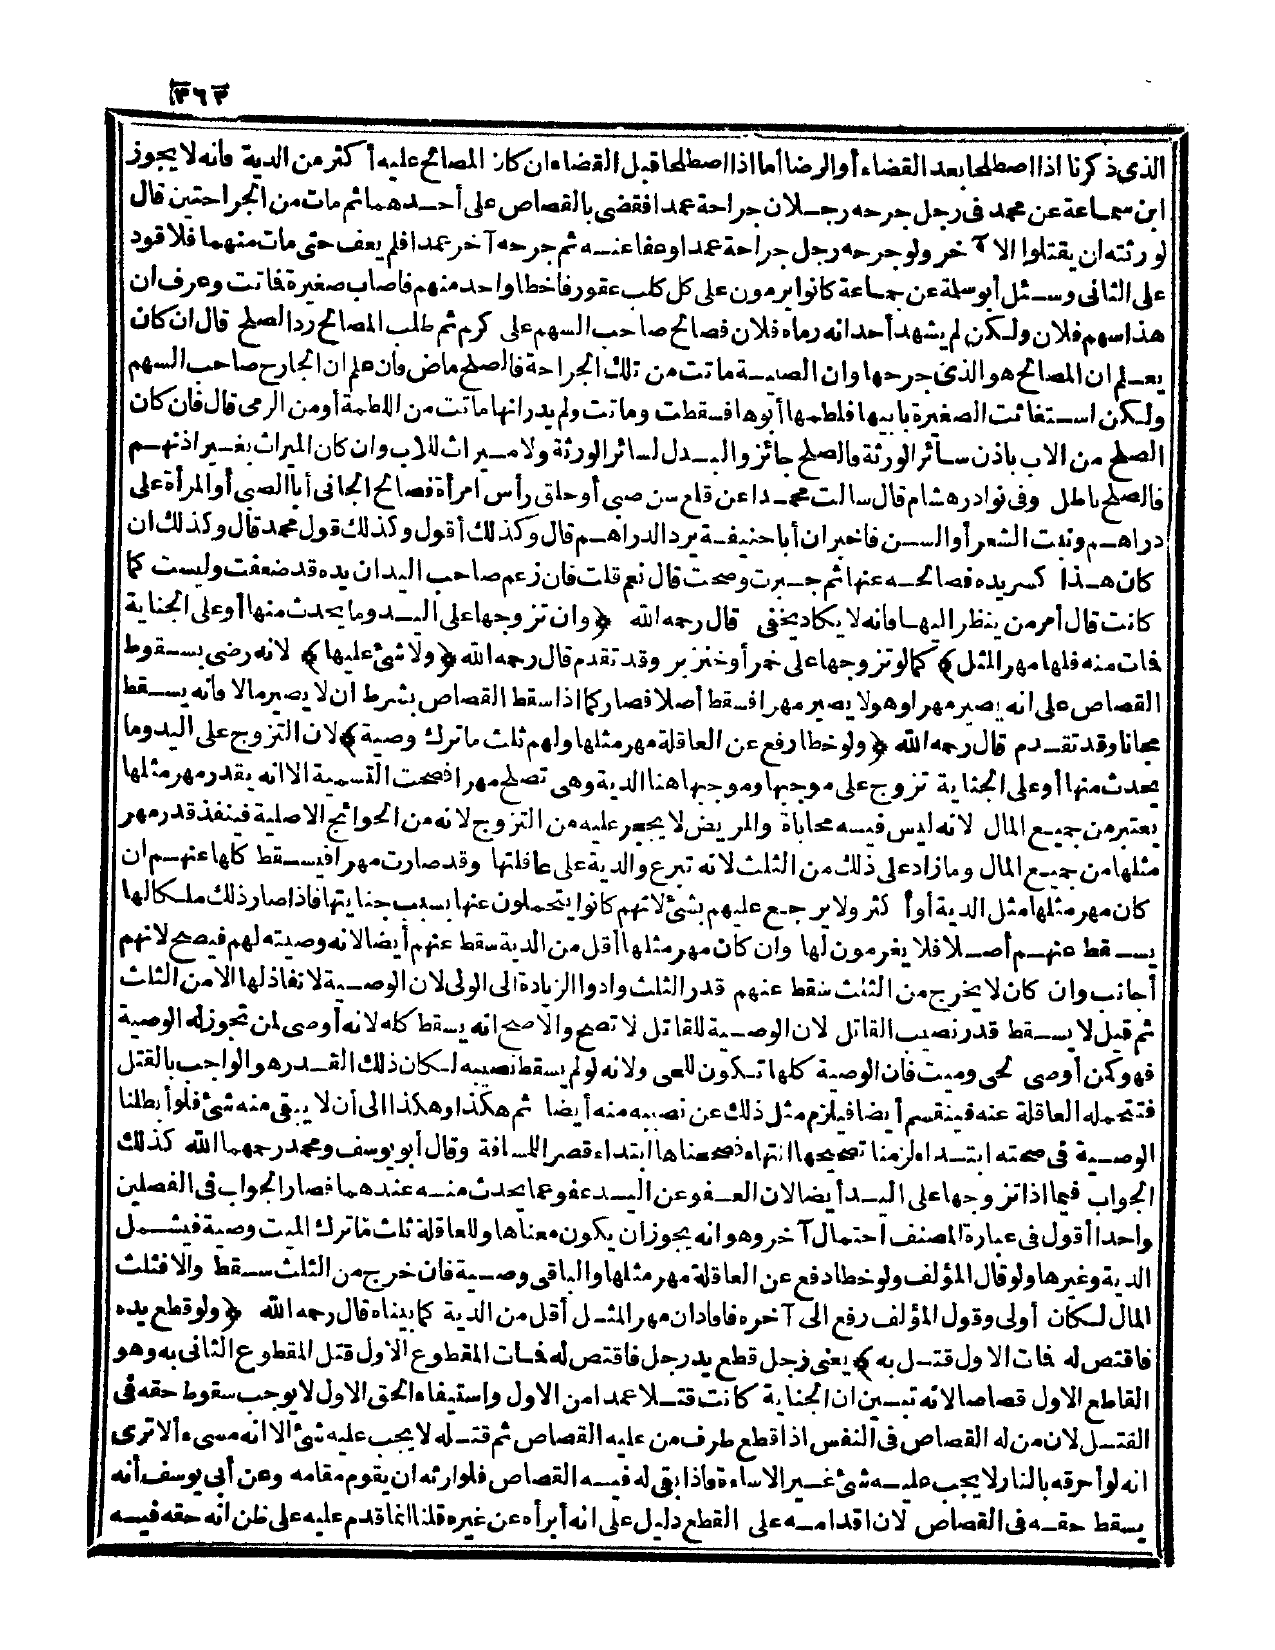 ٣٦٣
الذى ذكرنا اذا اصطلحا بعد القضاء أو الرضا أما اذا اصطلحا قبل القضاء ان كان المصالح عليه أكثر من الدية فانه لا يجوز
ابن سماعة عن محمد فى رجل جرحه رجلان جراحة عمدا فقضى بالقصاص على أحدهما ثم مات من الجراحتين قال
لورثته ان يقتلوا الآخر ولو جرحه رجل جراحة عمدا وعفا عنه ثم جرحه آخر عمدا فلم يعف حتى مات منهما فلا قود
على الثانى وسئل أبو سلمة عن جماعة كانوا يرمون على كل كلب عقور فاخطا واحد منهم فاصاب صغيرة فماتت وعرف ان
هذا سهم فلان ولكن لم يشهد أحد انه رماه فلان فصالح صاحب السهم على كرم ثم طلب المصالح رد الصلح قال ان كان
يعلم ان المصالح هو الذى جرحها وان الصبية ماتت من تلك الجراحة فالصلح ماض فان علم ان الجارح صاحب السهم
ولكن استغاثت الصغيرة بابيها فلطمها أبوها فسقطت وماتت ولم يدر انها ماتت من اللطمة أو من الرمى قال فان كان
الصلح من الاب باذن سائر الورثة فالصلح جائز والبدل لسائر الورثة ولا ميراث للاب وان كان الميراث بغير اذنهم
فالصلح باطل وفى نوادر هشام قال سالت محمدا عن قلع سن صبى أو حلق رأس امرأة فصالح الجانى أبا الصبى أو المرأة على
دراهم ونبت الشعر أو السن فاخبر ان أبا حنيفة يرد الدراهم قال وكذلك أقول وكذلك قول محمد قال وكذلك ان
كان هذا كسر يده فصالحه عنها ثم جبرت وصحت قال نعم قلت فان زعم صاحب اليد ان يده قد ضعفت وليست كما
كانت قال أمر من ينظر اليها فانه لا يكاد يخفى قال رحمه الله ﴿وان تزوجها على اليد وما يحدث منها أو على الجناية
فمات منه فلها مهر المثل﴾ كما لو تزوجها على خمر أو خنزير وقد تقدم قال رحمه الله ﴿ولا شئ عليها﴾ لانه رضى بسقوط
القصاص على انه يصير مهرا وهو لا يصير مهرا فسقط أصلا فصار كما اذا سقط القصاص بشرط ان لا يصير مالا فانه يسقط
مجانا وقد تقدم قال رحمه الله ﴿ولو خطا رفع عن العاقلة مهر مثلها ولهم ثلث ما ترك وصية﴾ لان التزوج على اليد وما
يحدث منها أو على الجناية تزوج على موجبها وموجبها هنا الدية وهى تصلح مهرا فصحت التسمية الا انه يقدر مهر مثلها
يعتبر من جميع المال لانه ليس فيه محاباة والمريض لا يحجر عليه من التزوج لانه من الحوائج الاصلية فينفذ قدر مهر
مثلها من جميع المال وما زاد على ذلك من الثلث لانه تبرع والدية على عاقلتها وقد صارت مهرا فيسقط كلها عنهم ان
كان مهر مثلها مثل الدية أو أكثر ولا يرجع عليهم بشئ لانهم كانوا يتحملون عنها بسبب جنايتها فاذا صار ذلك ملكا لها
يسقط عنهم أصلا فلا يغرمون لها وان كان مهر مثلها أقل من الدية سقط عنهم أيضا لانه وصيته لهم فيصح لانهم
أجانب وان كان لا يخرج من الثلث سقط عنهم قدر الثلث وادوا الزيادة الى الولى لان الوصية لا نفاذ لها الا من الثلث
ثم قيل لا يسقط قدر نصيب القاتل لان الوصية للقاتل لا تصح والاصح انه يسقط كله لانه أوصى لمن تجوز له الوصية
فهو كمن أوصى لحى وميت فان الوصية كلها تكون للحى ولانه لو لم يسقط نصيبه لكان ذلك القدر هو الواجب بالقتل
فتتحمله العاقلة عنه فينقسم أيضا فيلزم مثل ذلك عن نصيبه منه أيضا ثم هكذا وهكذا الى أن لا يبقى منه شئ فلو أبطلنا
الوصية فى صحته ابتداء لزمنا تصحيحها انتهاء فصححناها ابتداء قصر المسافة وقال أبو يوسف ومحمد رحمهما الله كذلك
الجواب فيما اذا تزوجها على اليد أيضا لان العفو عن اليد عفو عما يحدث منه عندهما فصار الجواب فى الفصلين
واحدا أقول فى عبارة المصنف احتمال آخر وهو انه يجوز ان يكون معناها وللعاقلة ثلث ما ترك الميت وصية فيشمل
الدية وغيرها ولو قال المؤلف ولو خطا دفع عن العاقلة مهر مثلها والباقى وصية فان خرج من الثلث سقط والا فثلث
المال لكان أولى وقول المؤلف رفع الى آخره فافاد ان مهر المثل أقل من الدية كما بيناه قال رحمه الله ﴿ولو قطع يده
فاقتص له فمات الاول قتل به﴾ يعنى رجل قطع يد رجل فاقتص له فمات المقطوع الاول قتل المقطوع الثانى به وهو
القاطع الاول قصاصا لانه تبين ان الجناية كانت قتلا عمدا من الاول واستيفاء الحق الاول لا يوجب سقوط حقه فى
القتل لان من له القصاص فى النفس اذا قطع طرف من عليه القصاص ثم قتله لا يجب عليه شئ الا انه مسىء ألا ترى
انه لو أحرقه بالنار لا يجب عليه شئ غير الاساءة واذا بقى له فيه القصاص فلوارثه ان يقوم مقامه وعن أبى يوسف أنه
يسقط حقه فى القصاص لان اقدامه على القطع دليل على انه أبرأه عن غيره قلنا انما قدم عليه على ظن انه حقه فيه